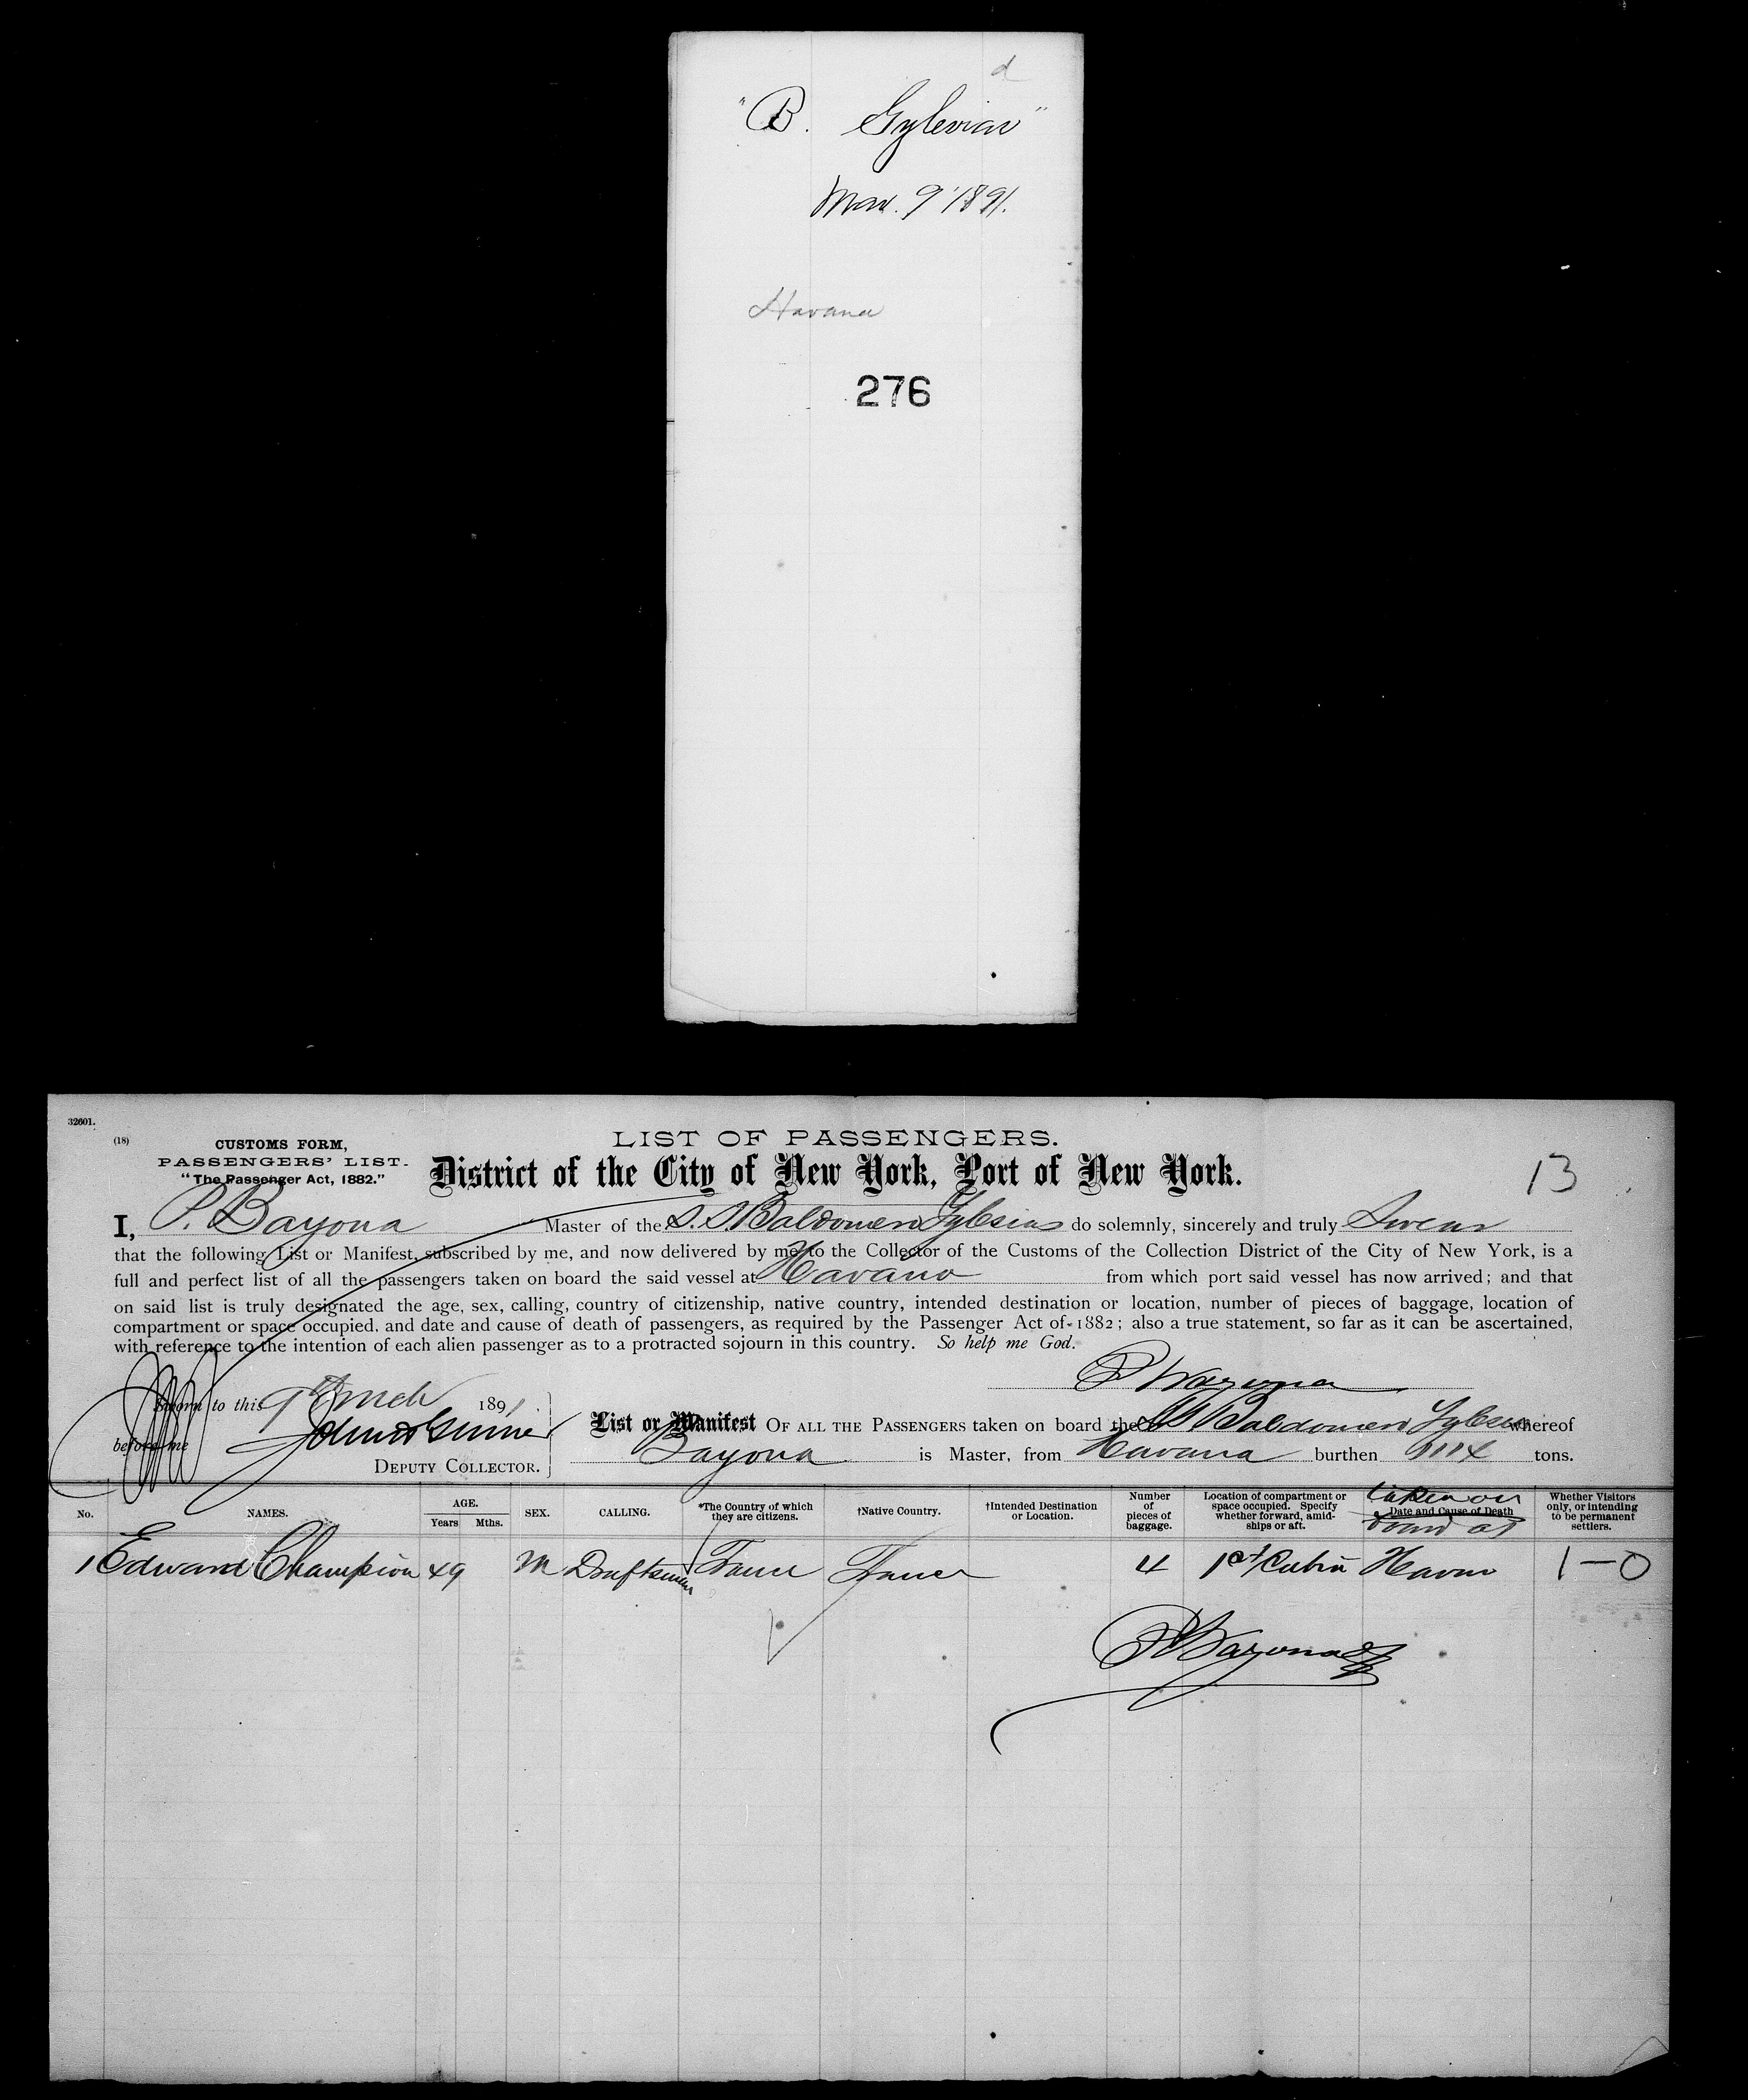 d
"B. Gylesias"
Mar. 9 '1891.
Havana
276
32601.
(18)
CUSTOMS FORM,
PASSENGERS' LIST.
"The Passenger Act, 1882."
LIST OF PASSENGERS.
District of the City of New York, Port of New York.
13
I, P. Bayona Master of the S. S. Baldomero Yglesias do solemnly, sincerely and truly Swear
that the following List or Manifest, subscribed by me, and now delivered by me to the Collector of the Customs of the Collection District of the City of New York, is a
full and perfect list of all the passengers taken on board the said vessel at Havana from which port said vessel has now arrived; and that
on said list is truly designated the age, sex, calling, country of citizenship, native country, intended destination or location, number of pieces of baggage, location of
compartment or space occupied. and date and cause of death of passengers, as required by the Passenger Act of 1882; also a true statement, so far as it can be ascertained,
with reference to the intention of each alien passenger as to a protracted sojourn in this country. So help me God.
P Bayona
Sworn to this 9th March 1891
before me
DEPUTY COLLECTOR.
List or Manifest OF ALL THE PASSENGERS taken on board the SS Baldomero Yglesias whereof
Bayona is Master, from Havana burthen tons.
No. NAMES. AGE. Years Mths. SEX. CALLING. *The Country of which they are citizens. †Native Country. †Intended Destination or Location. Number of pieces of baggage. Location of compartment or space occupied. Specify whether forward, amidships or aft. taken on Date and Cause of Death board at Whether Visitors only, or intending to be permanent settlers.
1 Edward Champion 49 M Draftsman France France 4 1st Cabin Havana 1-0
P Bayona